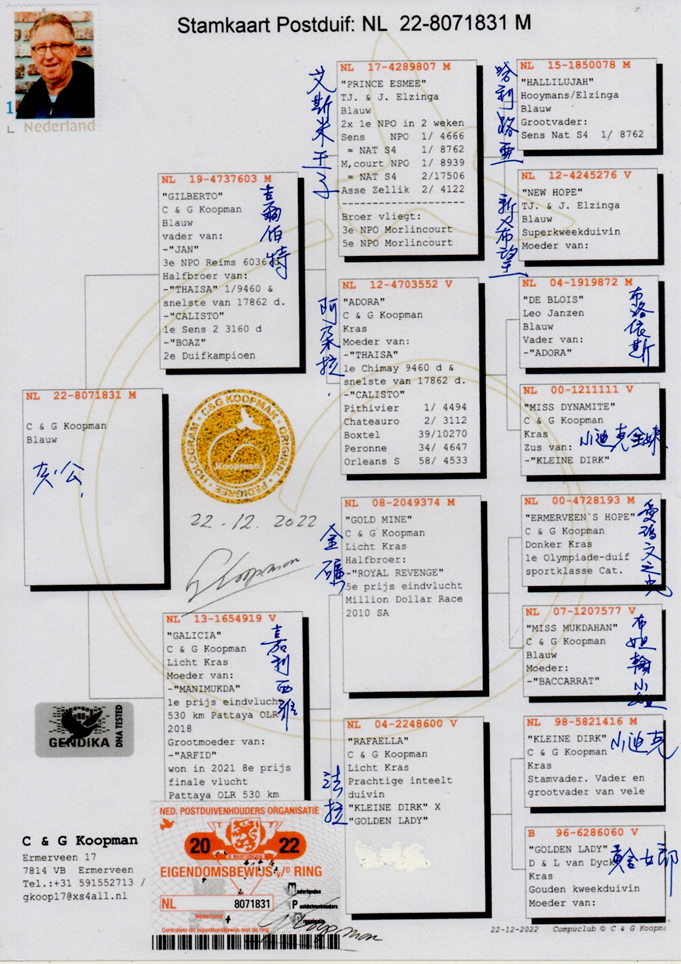 Stamkaart Postduif: NL 22-8071831 M
1
Nederland
NL 22-8071831 M
C & G Koopman
Blauw
灰公
NL 19-4737603 M
"GILBERTO"
C & G Koopman
Blauw
vader van:
-"JAN"
3e NPO Reims 6036 d
Halfbroer van:
-"THAISA" 1/9460 &
snelste van 17862 d.
-"CALISTO"
1e Sens 2 3160 d
-"BOAZ"
2e Duifkampioen
吉爾伯特
NL 13-1654919 V
"GALICIA"
C & G Koopman
Licht Kras
Moeder van:
-"MANIMUKDA"
1e prijs eindvlucht
530 km Pattaya OLR
2018
Grootmoeder van:
-"ARFID"
won in 2021 8e prijs
finale vlucht
Pattaya OLR 530 km
嘉利西雅
NL 17-4289807 M
"PRINCE ESMEE"
TJ. & J. Elzinga
Blauw
2x 1e NPO in 2 weken
Sens NPO 1/ 4666
= NAT S4 1/ 8762
M,court NPO 1/ 8939
= NAT S4 2/17506
Asse Zellik 2/ 4122
--------------------
Broer vliegt:
3e NPO Morlincourt
5e NPO Morlincourt
艾斯米王子
NL 12-4703552 V
"ADORA"
C & G Koopman
Kras
Moeder van:
-"THAISA"
1e Chimay 9460 d &
snelste van 17862 d.
-"CALISTO"
Pithivier 1/ 4494
Chateauro 2/ 3112
Boxtel 39/10270
Peronne 34/ 4647
Orleans S 58/ 4533
阿朵拉
NL 08-2049374 M
"GOLD MINE"
C & G Koopman
Licht Kras
Halfbroer:
-"ROYAL REVENGE"
5e prijs eindvlucht
Million Dollar Race
2010 SA
金礦
NL 04-2248600 V
"RAFAELLA"
C & G Koopman
Licht Kras
Prachtige inteelt
duivin
"KLEINE DIRK" X
"GOLDEN LADY"
法拉
NL 15-1850078 M
"HALLILUJAH"
Hooymans/Elzinga
Blauw
Grootvader:
Sens Nat S4 1/ 8762
哈利路亞
NL 12-4245276 V
"NEW HOPE"
TJ. & J. Elzinga
Blauw
Superkweekduivin
Moeder van:
新希望
NL 04-1919872 M
"DE BLOIS"
Leo Janzen
Blauw
Vader van:
-"ADORA"
布洛依斯
NL 00-1211111 V
"MISS DYNAMITE"
C & G Koopman
Kras
Zus van:
-"KLEINE DIRK"
小迪克全妹
NL 00-4728193 M
"ERMERVEEN'S HOPE"
C & G Koopman
Donker Kras
1e Olympiade-duif
sportklasse Cat.
NL 07-1207577 V
"MISS MUKDAHAN"
C & G Koopman
Blauw
Moeder:
-"BACCARRAT"
NL 98-5821416 M
"KLEINE DIRK"
C & G Koopman
Kras
Stamvader. Vader en
grootvader van vele
小迪克
B 96-6286060 V
"GOLDEN LADY"
D & L van Dyck
Kras
Gouden kweekduivin
Moeder van:
黃金女郎
C&G KOOPMAN · ORIGINAL · PEDIGREE · HOLOGRAM
Koopman
22-12. 2022
Koopman
GENDIKA
DNA TESTED
C & G Koopman
Ermerveen 17
7814 VB Ermerveen
Tel.:+31 591552713 /
gkoop17@xs4all.nl
NED. POSTDUIVENHOUDERS ORGANISATIE
20 22
EIGENDOMSBEWIJS v/d RING
NL 8071831
Nederland
Nederlandse
Postduivenhouders
Organisatie
Controleer dit eigendomsbewijs met de ring
Koopman
22-12-2022 Compuclub © C & G Koopm